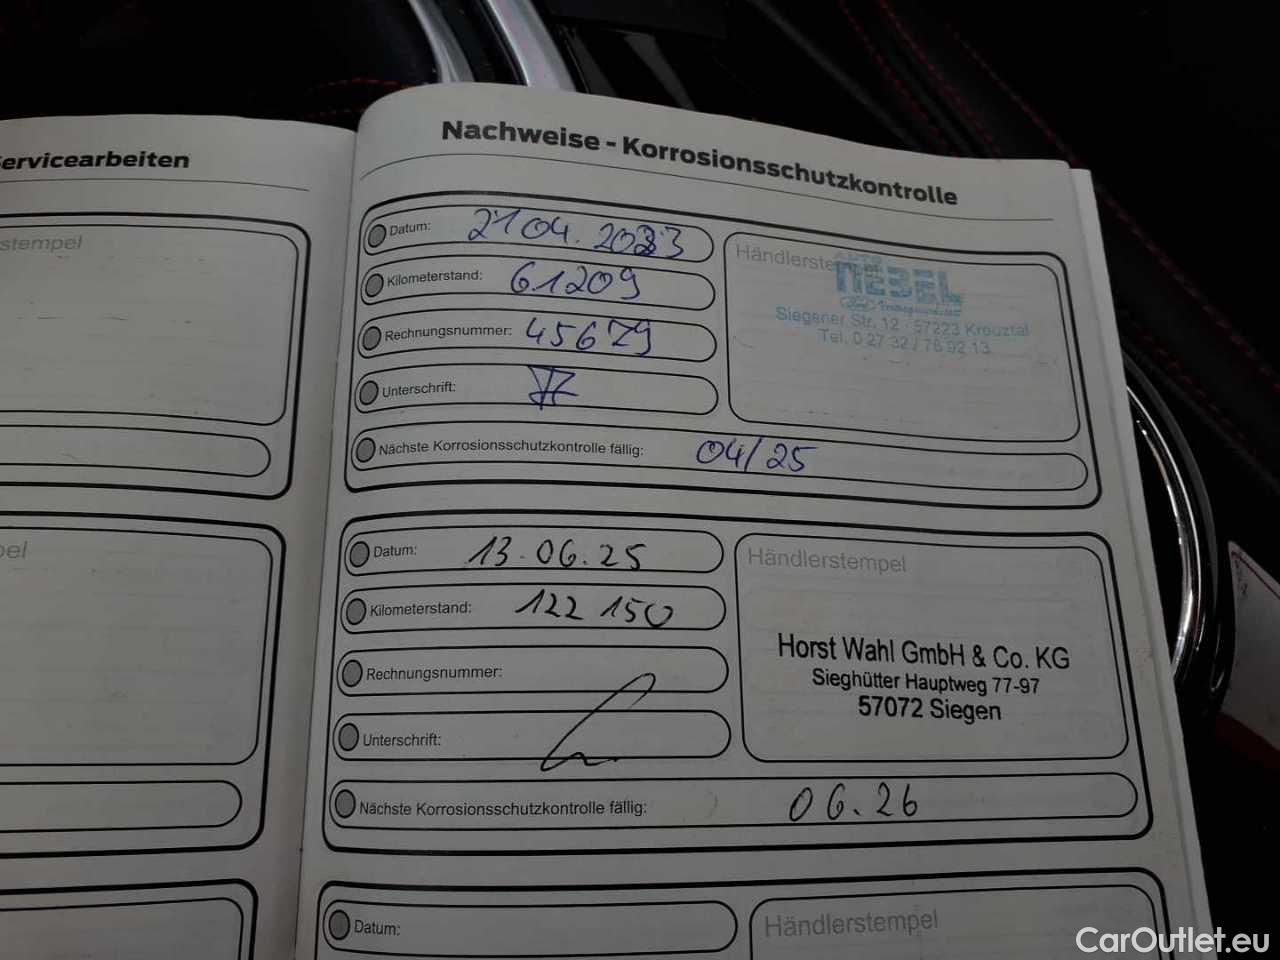 Servicearbeiten
stempel
pel
Nachweise - Korrosionsschutzkontrolle
Datum: 21 04. 2023
Kilometerstand: 61209
Rechnungsnummer: 45679
Unterschrift:
Nächste Korrosionsschutzkontrolle fällig: 04/25
Händlerstempel
AUTO
NEBEL
Siegener Str. 12 · 57223 Kreuztal
Tel. 0 27 32 / 76 92 13
Datum: 13.06.25
Kilometerstand: 122 150
Rechnungsnummer:
Unterschrift:
Nächste Korrosionsschutzkontrolle fällig: 06.26
Händlerstempel
Horst Wahl GmbH & Co. KG
Sieghütter Hauptweg 77-97
57072 Siegen
Datum:
Händlerstempel
CarOutlet.eu